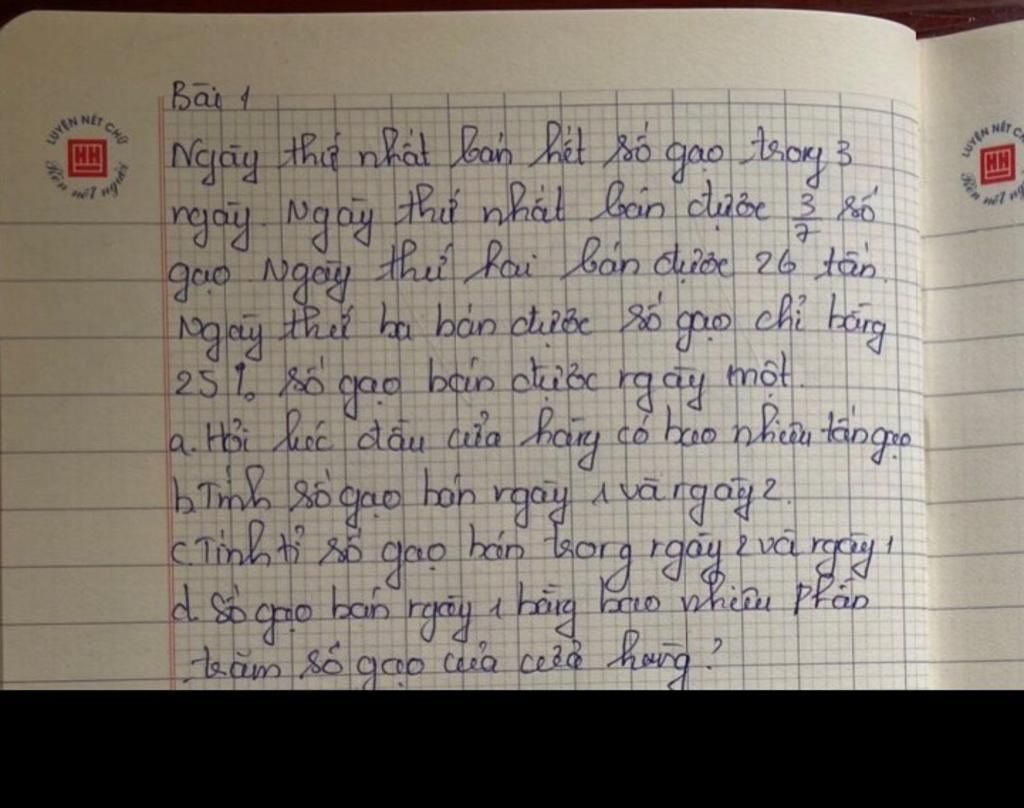 Bài 1
LUYỆN NÉT CHỮ
HH
Rèn nết người
Ngày thứ nhất bán hết số gạo trong 3
ngày. Ngày thứ nhất bán được 3/7 số
gạo. Ngày thứ hai bán được 26 tấn.
Ngày thứ ba bán được số gạo chỉ bằng
25% số gạo bán được ngày một.
a. Hỏi lúc đầu cửa hàng có bao nhiêu tấn gạo
b. Tính số gạo bán ngày 1 và ngày 2.
c. Tính tỉ số gạo bán trong ngày 2 và ngày 1
d. Số gạo bán ngày 1 bằng bao nhiêu phần
trăm số gạo của cửa hàng?
LUYỆN NÉT C
HH
Rèn nết ng